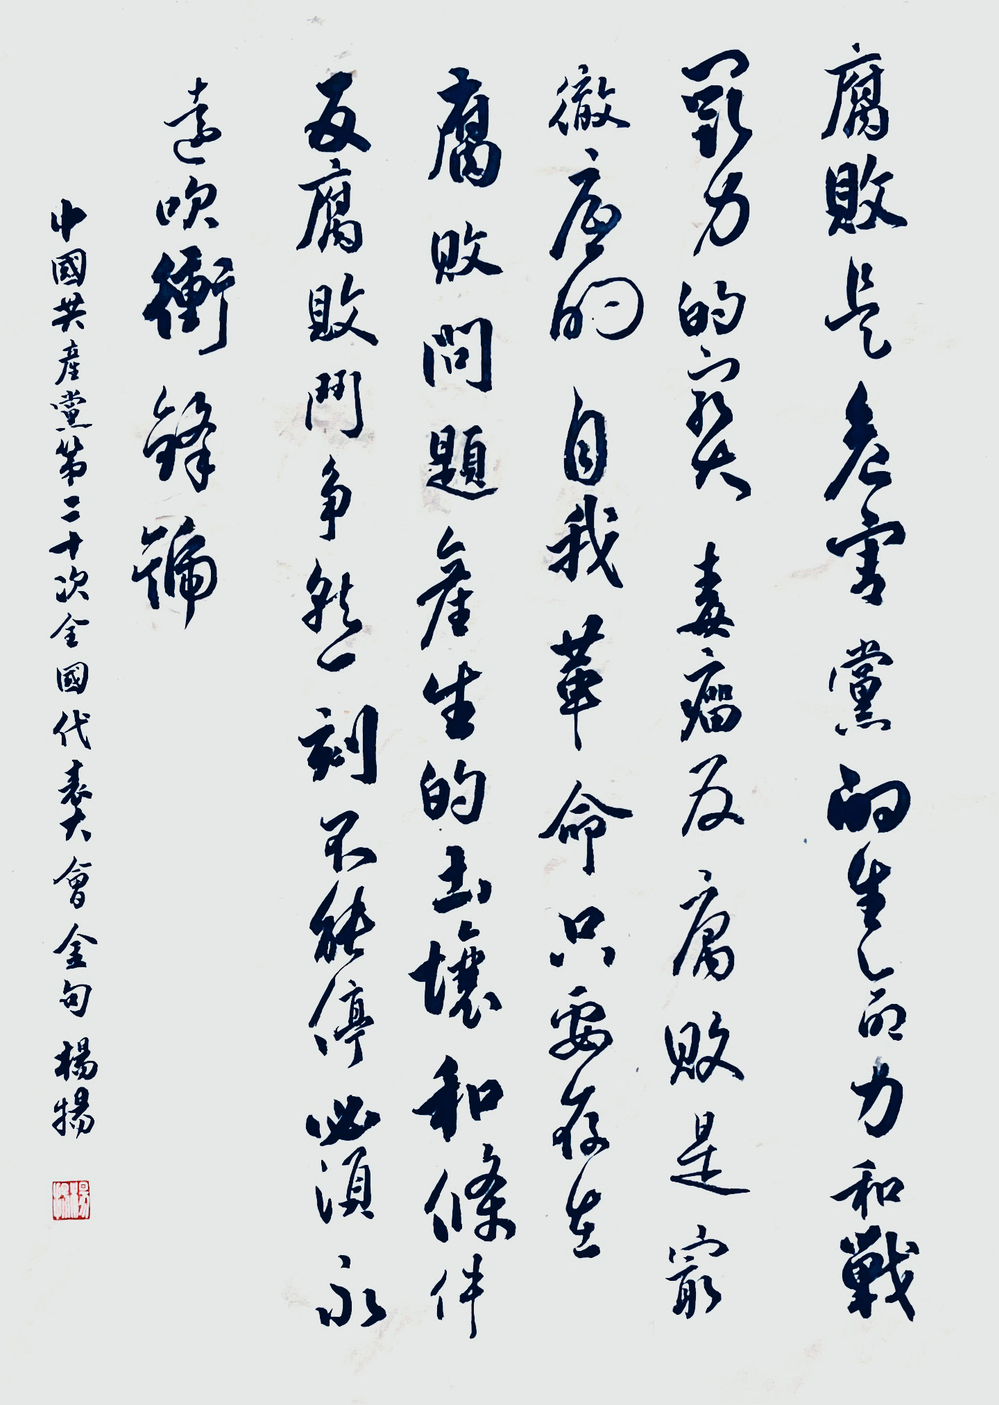 腐敗是危害黨的生命力和戰
鬥力的最大毒瘤反腐敗是最
徹底的自我革命只要存在
腐敗問題產生的土壤和條件
反腐敗鬥争就一刻不能停必須永
遠吹衝鋒號
中國共產黨第二十次全國代表大會金句 楊揚